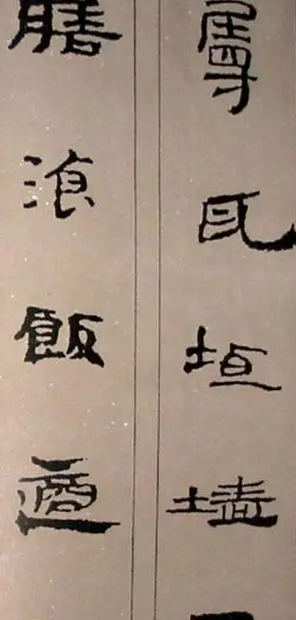 屬耳垣墻
膳湌飯適